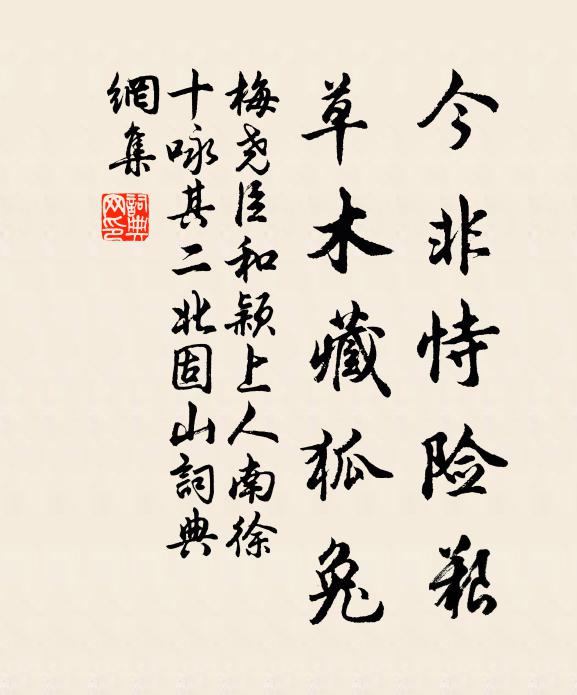 今非恃险艰
草木藏狐兔
梅尧臣和颖上人南徐
十咏其二北固山詞典
網集
詞典网印